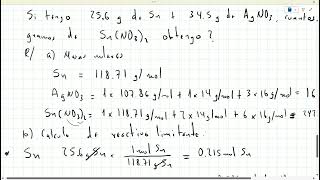 Si tengo 25.6 g de Sn + 34.5 g de AgNO3, cuantos
gramos de Sn(NO3)2 obtengo?
R/ a) Masas molares
Sn = 118.71 g/mol
AgNO3 = 1×107.86 g/mol + 1×14 g/mol + 3×16 g/mol = 16
Sn(NO3)2 = 1×118.71 g/mol + 2×14 g/mol + 6×16 g/mol = 242.
b) Calculo de reactivo limitante.
* Sn 25.6 g Sn × 1 mol Sn / 118.71 g Sn = 0.215 mol Sn